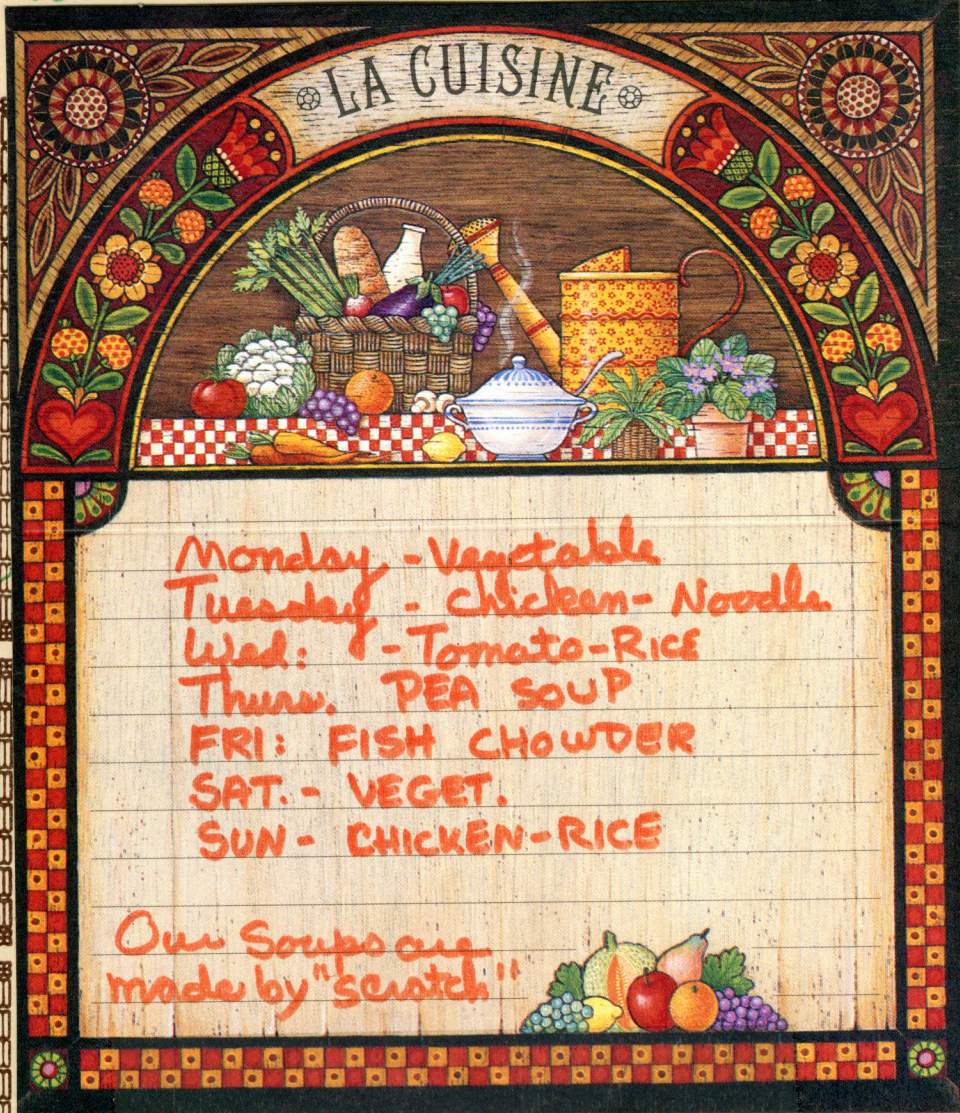 LA CUISINE
Monday - Vegetable
Tuesday - Chicken- Noodle
Wed: - Tomato-RICE
Thurs. PEA SOUP
FRI: FISH CHOWDER
SAT.- VEGET.
SUN- CHICKEN-RICE
Our Soups are
made by "scratch"